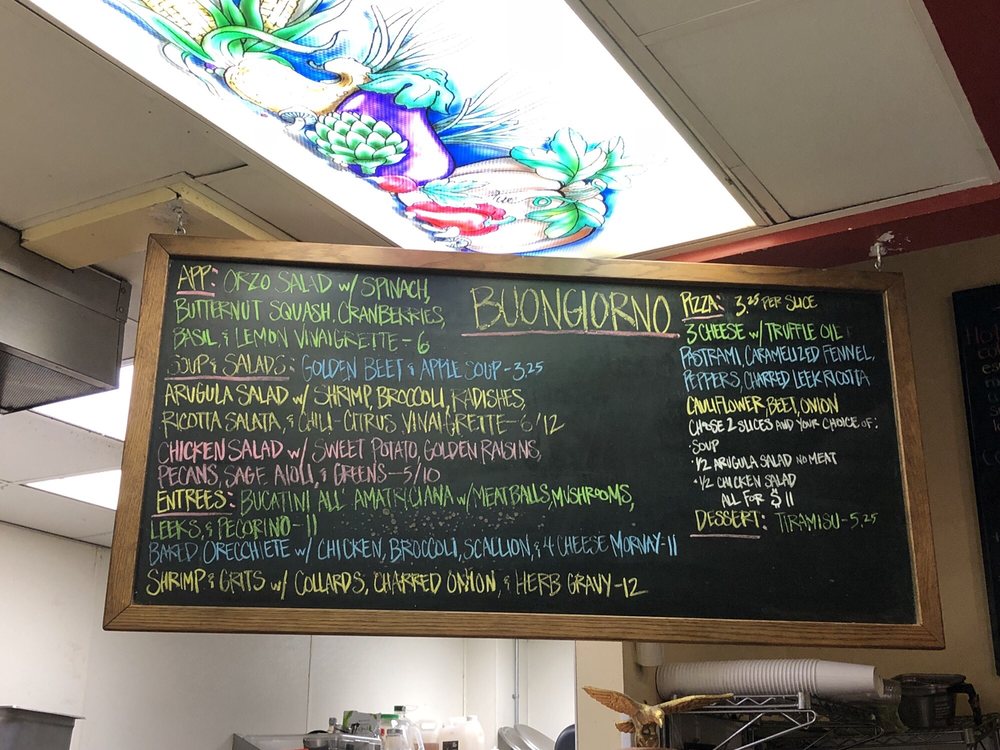 APP: ORZO SALAD W/ SPINACH,
BUTTERNUT SQUASH, CRANBERRIES,
BASIL, & LEMON VINAIGRETTE - 6
SOUP & SALADS: GOLDEN BEET & APPLE SOUP - 3.25
ARUGULA SALAD W/ SHRIMP, BROCCOLI, RADISHES,
RICOTTA SALATA, & CHILI-CITRUS VINAIGRETTE - 6/12
CHICKEN SALAD W/ SWEET POTATO, GOLDEN RAISINS,
PECANS, SAGE AIOLI, & GREENS - 5/10
ENTREES: BUCATINI ALL' AMATRICIANA W/ MEATBALLS, MUSHROOMS,
LEEKS, & PECORINO - 11
BAKED ORECCHIETE W/ CHICKEN, BROCCOLI, SCALLION, & 4 CHEESE MORNAY - 11
SHRIMP & GRITS W/ COLLARDS, CHARRED ONION, & HERB GRAVY - 12
BUONGIORNO
PIZZA: 3.25 PER SLICE
3 CHEESE W/ TRUFFLE OIL
PASTRAMI, CARAMELIZED FENNEL,
PEPPERS, CHARRED LEEK RICOTTA
CAULIFLOWER, BEET, ONION
CHOSE 2 SLICES AND YOUR CHOICE OF:
·SOUP
·1/2 ARUGULA SALAD NO MEAT
·1/2 CHICKEN SALAD
ALL FOR $11
DESSERT: TIRAMISU - 5.25